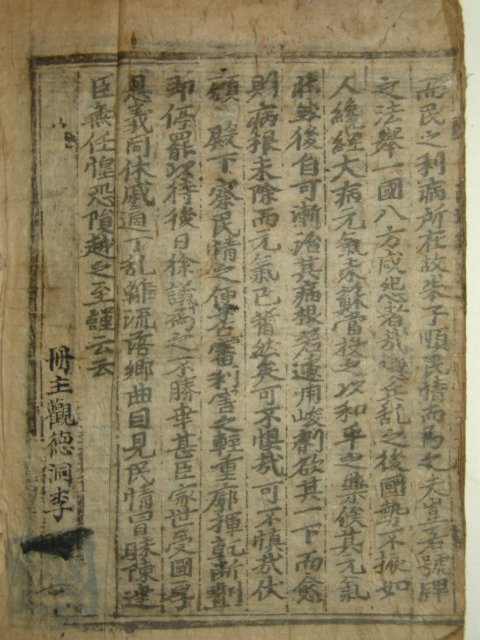 而民之利病所在故朱子順民情而爲之夫豈若號牌
之法舉一國八方咸怨者哉兵乱之後國勢不振如
人纔經大病元氣未蘇當投之以和平之藥俟其元氣
壯然後自可漸治其病根若遽用峻劑欲其一下而愈
則病根未除而元氣已薾然矣可不惧哉可不慎哉伏
願 殿下察民情之便苦審利害之輕重廓揮乾斷劃
即停罷以待後日徐議爲之不勝幸甚臣家世受國厚
恩義同休戚適丁乱離流落鄉曲目見民情冒昧陳達
臣無任惶恐隕越之至謹云云
冊主觀德洞李